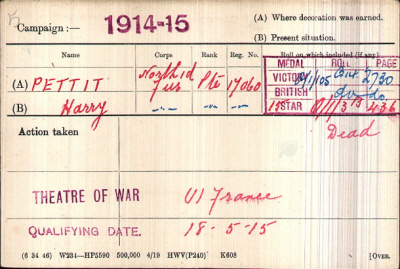 Campaign :— 1914-15
(A) Where decoration was earned.
(B) Present situation.
Name Corps Rank Reg. No. Roll on which included (if any).
MEDAL ROLL PAGE
(A) PETTIT North'd Fus Pte 17060
VICTORY 2730
BRITISH do do
15 STAR 436
(B) Harry —"— —"— "
Action taken
Dead
THEATRE OF WAR VI France
QUALIFYING DATE. 18-5-15
(6 34 46) W234—HP5590 500,000 4/19 HWV(P240) K608
[OVER.